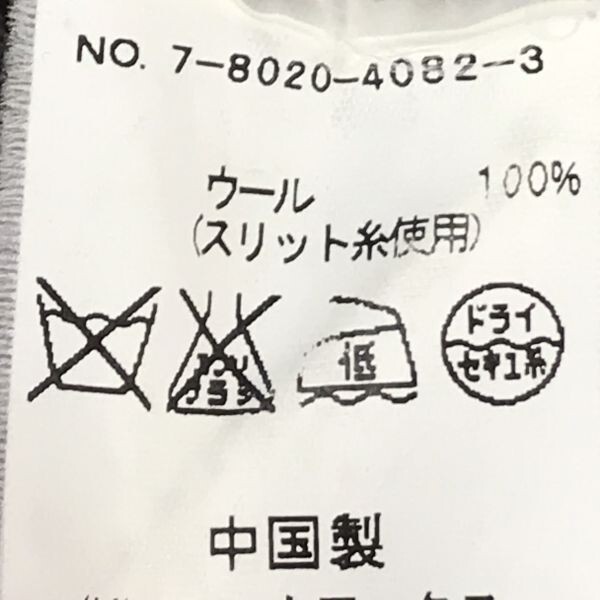 NO. 7-8020-4082-3
ウール 100%
(スリット糸使用)
低
ドライ
セキユ系
中国製